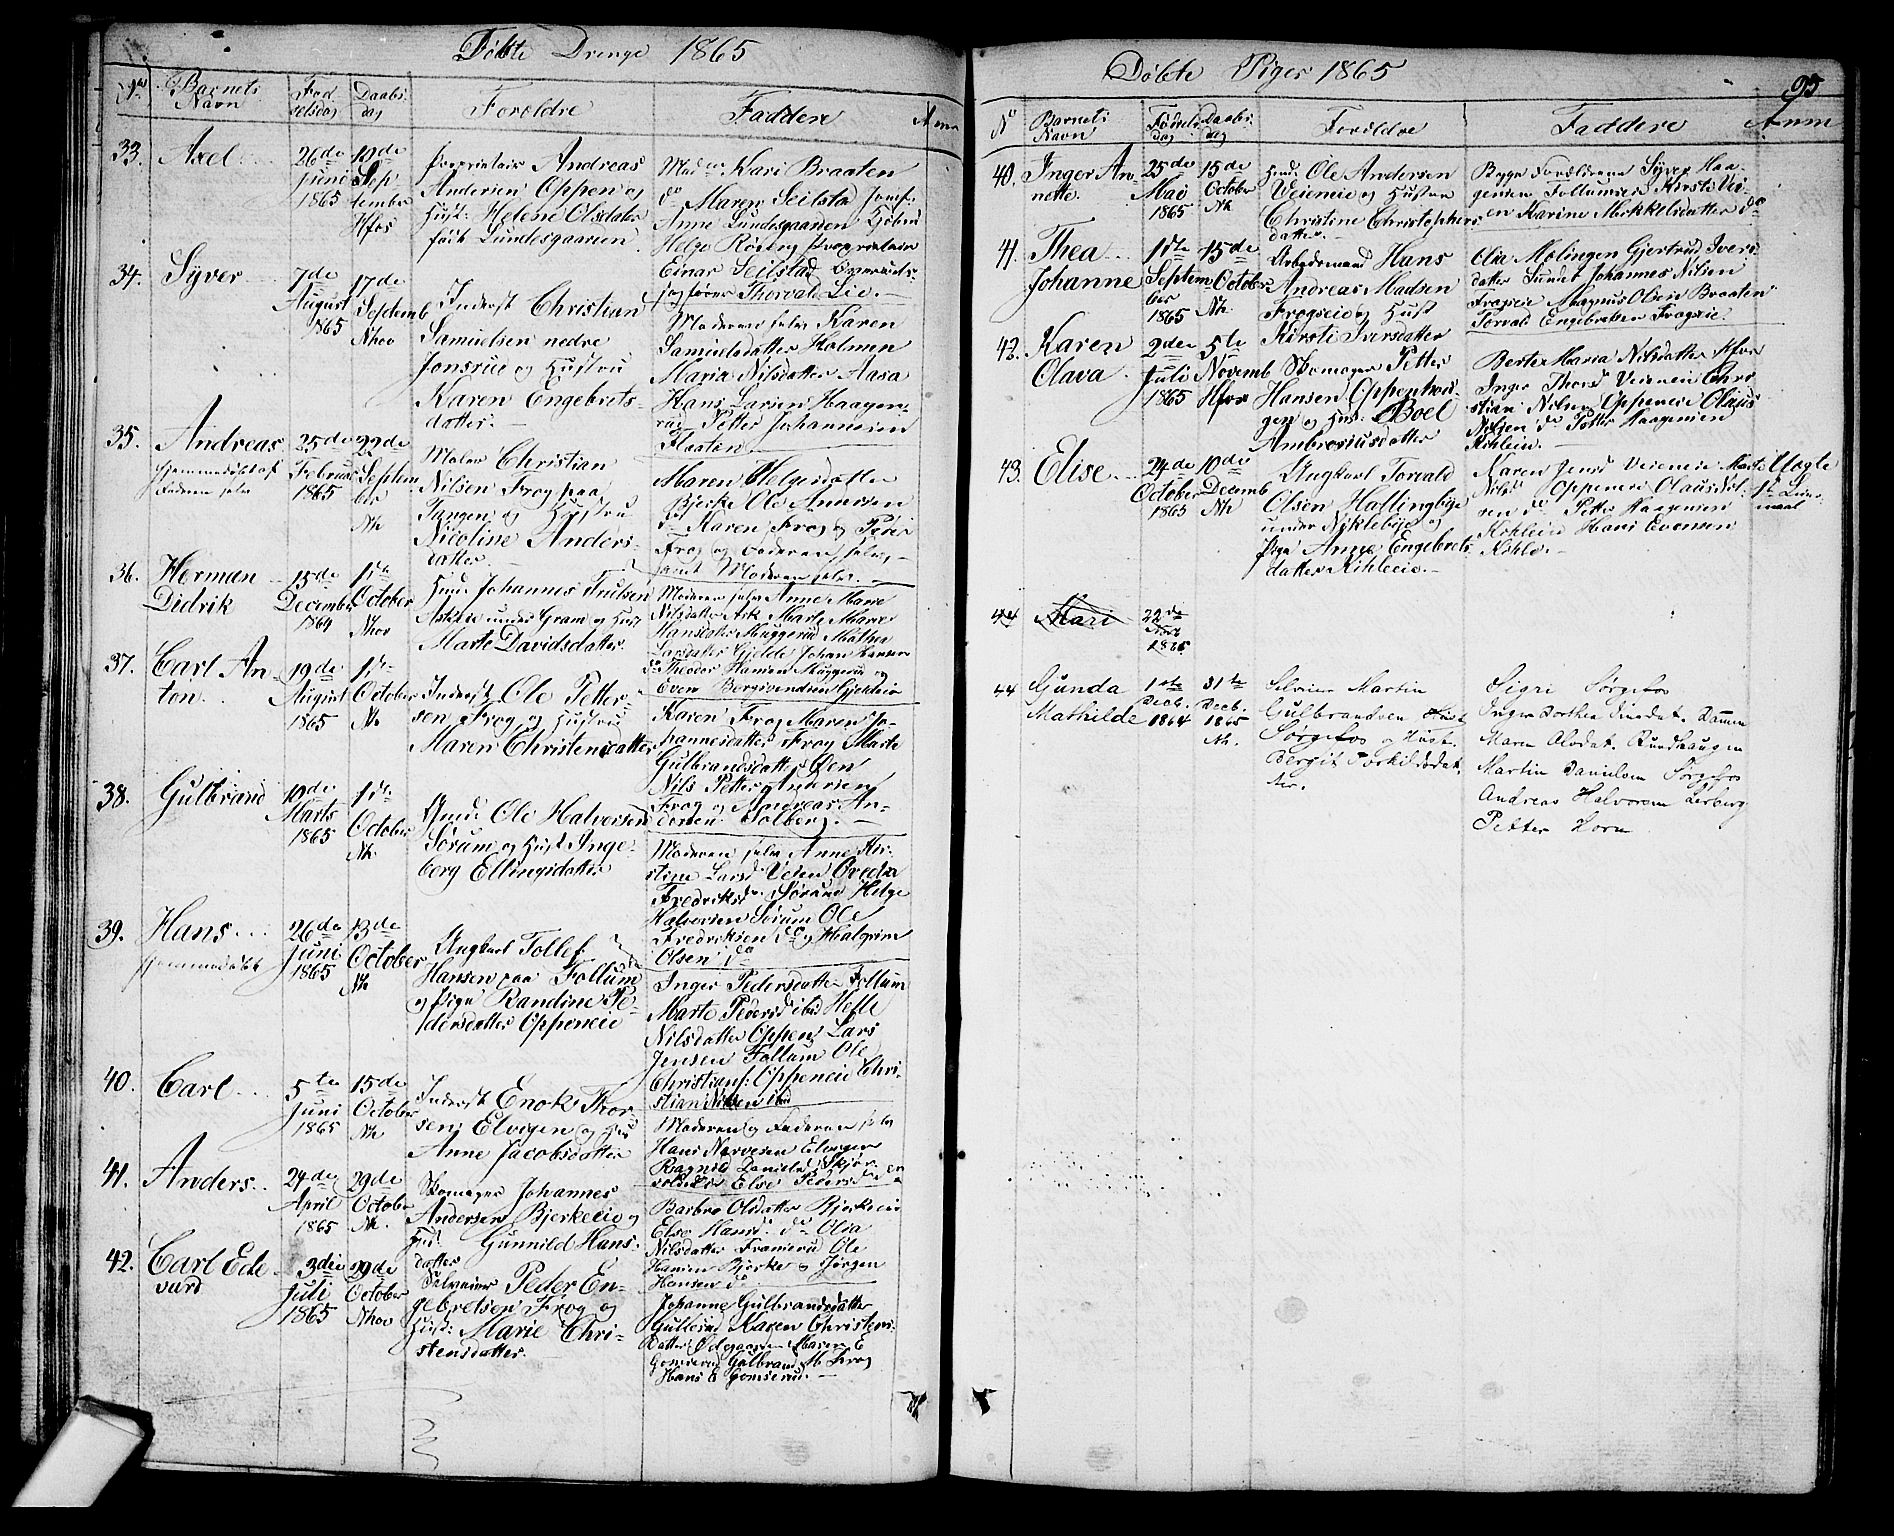 Døbte Drenge 1865
No Barnets Navn Fødselsdag Daabsdag Forældre Faddere Anm
33. Axel 26de Juni 1865 10de September Hfos
Proprietair Andreas
Andersen Oppen og
Hust: Helene Olsdatter
født Lundesgaarden
Mad. Kari Braaten
do Maren Seilstad Jomf.
Anne Lundesgaarden
Helge
Einar Seilstad
Thorvald Lie.
34. Syver 7de August 1865 17de Septemb Nhov
Inderst Christian
Samuelsen nedre
Jonsrue og Hustru
Karen Engebrets-
datter.
Moderen selv Karen
Samuelsdatter Holmen
Maria Nilsdatter Aasa
Hans Larsen Haagen-
Petter Johannesen
35. Andreas 25de Februar 1865 22de September Nk
hjemmedøbt af
Faderen selv
Maler Christian
Nilsen Frog paa
Tangen og Hustru
Nicoline Anders-
datter
Maren Helgesdatter
Bjerke Ole Andersen
do Karen Frog og Peder
Frog og Faderen selv,
samt Moderen selv.
36. Herman Didrik 15de December 1864 1ste October Nhov
Husm. Johannes
Askeie under Gram og Hust
Marte Davidsdatter.
Moderen selv Anne Marie
Nilsdatter Ask Marte Marie
Hansdatter Muggerud Mathea
Larsdatter Gjelde Johan Hansen
do Theodor Hansen Muggerud og
Even
37. Carl Anton 19de August 1865 1ste October Nk
Inderst Ole Petter-
sen Frog og Hustru
Maren Christensdatter
Karen Frog Maren Jo-
hannesdatter Frog Marte
Gulbrandsdatter Oen
Nils Petter Andersen
Frog og Andreas An-
dersen Solberg.
38. Gulbrand 19de Marts 1865 1ste October Nk
Gmd. Ole Halvorsen
Sørum og Hust Inge-
berg Ellingsdatter
Moderen selv Anne Kir-
stine Larsd Vesen
Fredriksd. Sørum Helge
Halvorsen Sørum Ole
Fredriksen do og Halgrim
Olsen do
39. Hans 26de Juni 1865 13de October Nk
hjemmedøbt
Ungkarl Tollef
Hansen paa Follum
og Pige Randine Pe-
dersdatter Oppeneie
Inger Pedersdatter Follum
Marte Pedersd ibid
Nilsdatter Oppen Lars
Jensen Follum Ole
Christians: Oppeneie Chri-
stian Nilsen ibid
40. Carl 5te Juni 1865 15de October Nk
Inderst Enok Thor-
sen Elvigen og Hus
Anne Jacobsdatter
Moderen og Faderen selv
Hans Narvesen Elvigen
Ragnild Danielsd
Else Pedersd
41. Anders 24de April 1865 29de October Nk.
Skomager Johannes
Andersen Bjerkeeie og
Hus. Gunnild Hans-
datter
Barbro Olsdatter Bjerkeeie
Else Hansd. do Olia
Nilsdatter Framerud Ole
Hansen Bjerke og Jørgen
Hansen do
42. Carl Edevard 3die Juli 1865 29de October Nhov
Selveier Peder En-
gebretsen Frog og
Hust: Marie Chri-
stensdatter
Johanne Gulbrandsdatter
Gullerud Karen Christens-
datter Maren E
Gomserud Gulbrand M Frog
Hans E Gomserud.
Døbte Piger 1865
95
No Barnets Navn Fødselsdag Daabsdag Forældre Faddere Anm
40. Inger Annette. 25de Mai 1865 15de October Nk
Husm. Ole Andersen
Veieneie og Hustru
Christine Christophers
datter.
Syver Haa-
gensen Kirsti Vei-
en Karine Mikkelsdatter do
41. Thea Johanne 1ste September 1865 15de October Nk.
Arbeidsmand Hans
Andreas Madsen
Frogseie og Hust
Kirsti Iversdatter
Olia Molingen Gjertrud Ivers-
datter Sundet Johannes Nilsen
Frogseie Magnus Olsen Braaten
Torvald Engebretsen Frogseie.
42. Karen Olava. 2den Juli 1865 5te Novemb Hfos
Skomager Petter
Hansen Oppenhei-
gen og Hus: Boel
Ambrosiusdatter
Berte Maria Nilsdatter Hfos
Inger Thorsd Veieneie Chri-
stian Nilsen Oppeneie Olaus
Nilsen do Petter Haagensen
Kihleie.
43. Elise 24de October 1865 10de Decemb Nk
Ungkarl Torvald
Olsen Hallingbye
under Niklebye og
Pige Anne Engebrets-
datter Kihleeie.
Maren Jensd Veieneie Marte
Nilsd Oppeneie Olaus Nil-
sen do Petter Haagensen
Kihleeie Hans Evensen
Kihle.
Uægte
1ste Leier-
maal
44 Mari 22de Novb 1865
44 Gunda Mathilde 1ste Decb. 1864 31te Decb. 1865 Nk.
Selveier Martin
Gulbrandsen
Sørgefos og Hust.
Bergit Torkildsdat-
ter.
Sigri Sørgefos
Inger Dorthea Dammen
Maren Olsdat. Rundhaugen
Martin Danielsen Sørgefos
Andreas Halvorsen Lerberg
Petter Horn